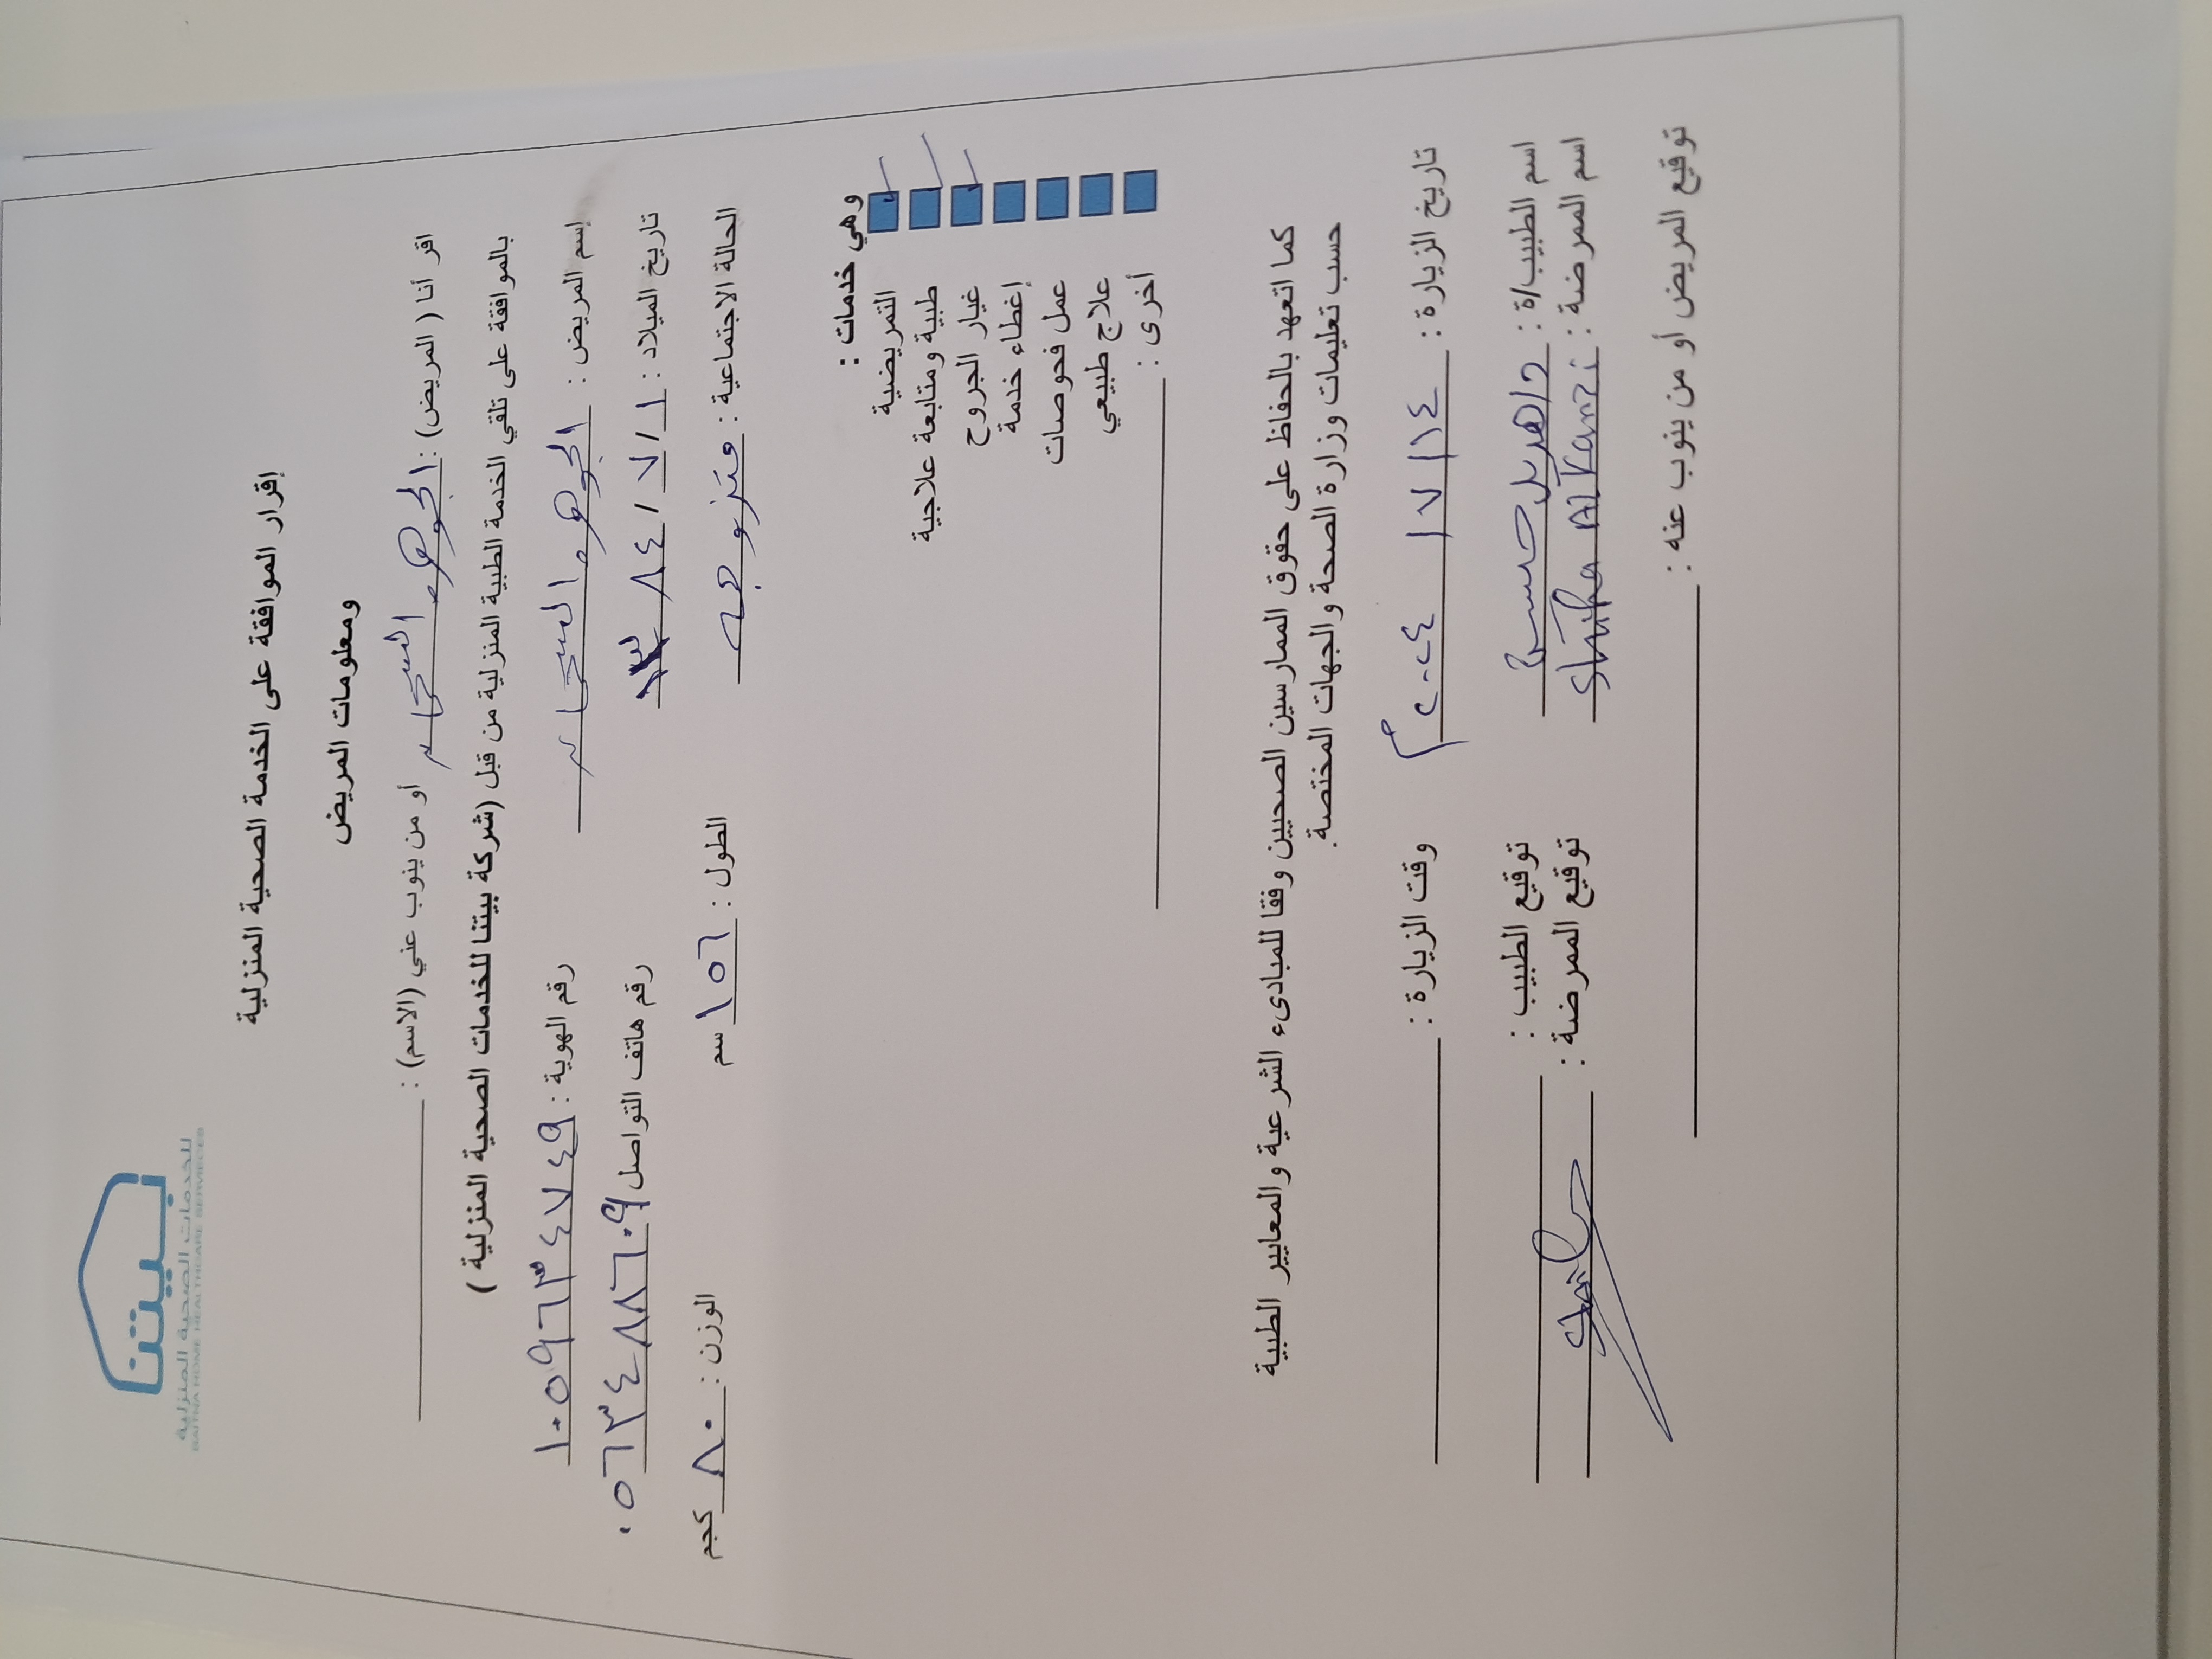 بيتنا
للخدمات الصحية المنزلية
BAITNA HOME HEALTHCARE SERVICES
إقرار الموافقة على الخدمة الصحية المنزلية
ومعلومات المريض
اقر أنا ( المريض) : الجوهره أو من ينوب عني (الاسم) :
بالموافقة على تلقي الخدمة الطبية المنزلية من قبل (شركة بيتنا للخدمات الصحية المنزلية )
إسم المريض : الجوهره رقم الهوية : ١٠٥٩٦٣٤٧٤٩
تاريخ الميلاد : ١ / ٧ / ٨٤ ١٣ رقم هاتف التواصل ٠٥٦٣٤٨٨٦٠٩
الحالة الاجتماعية : متزوجه الطول : ١٥٦ سم الوزن : ٨٠ كجم
وهي خدمات :
التمريضية
طبية ومتابعة علاجية
غيار الجروح
إغطاء خدمة
عمل فحوصات
علاج طبيعي
أخرى :
كما اتعهد بالحفاظ على حقوق الممارسين الصحيين وفقا للمبادىء الشرعية والمعايير الطبية
حسب تعليمات وزارة الصحة والجهات المختصة.
تاريخ الزيارة : ١٤ / ٧ / ٢٠٢٤ م وقت الزيارة :
اسم الطبيب/ة : د/هديل حسن توقيع الطبيب :
اسم الممرضة : توقيع الممرضة :
توقيع المريض أو من ينوب عنه :